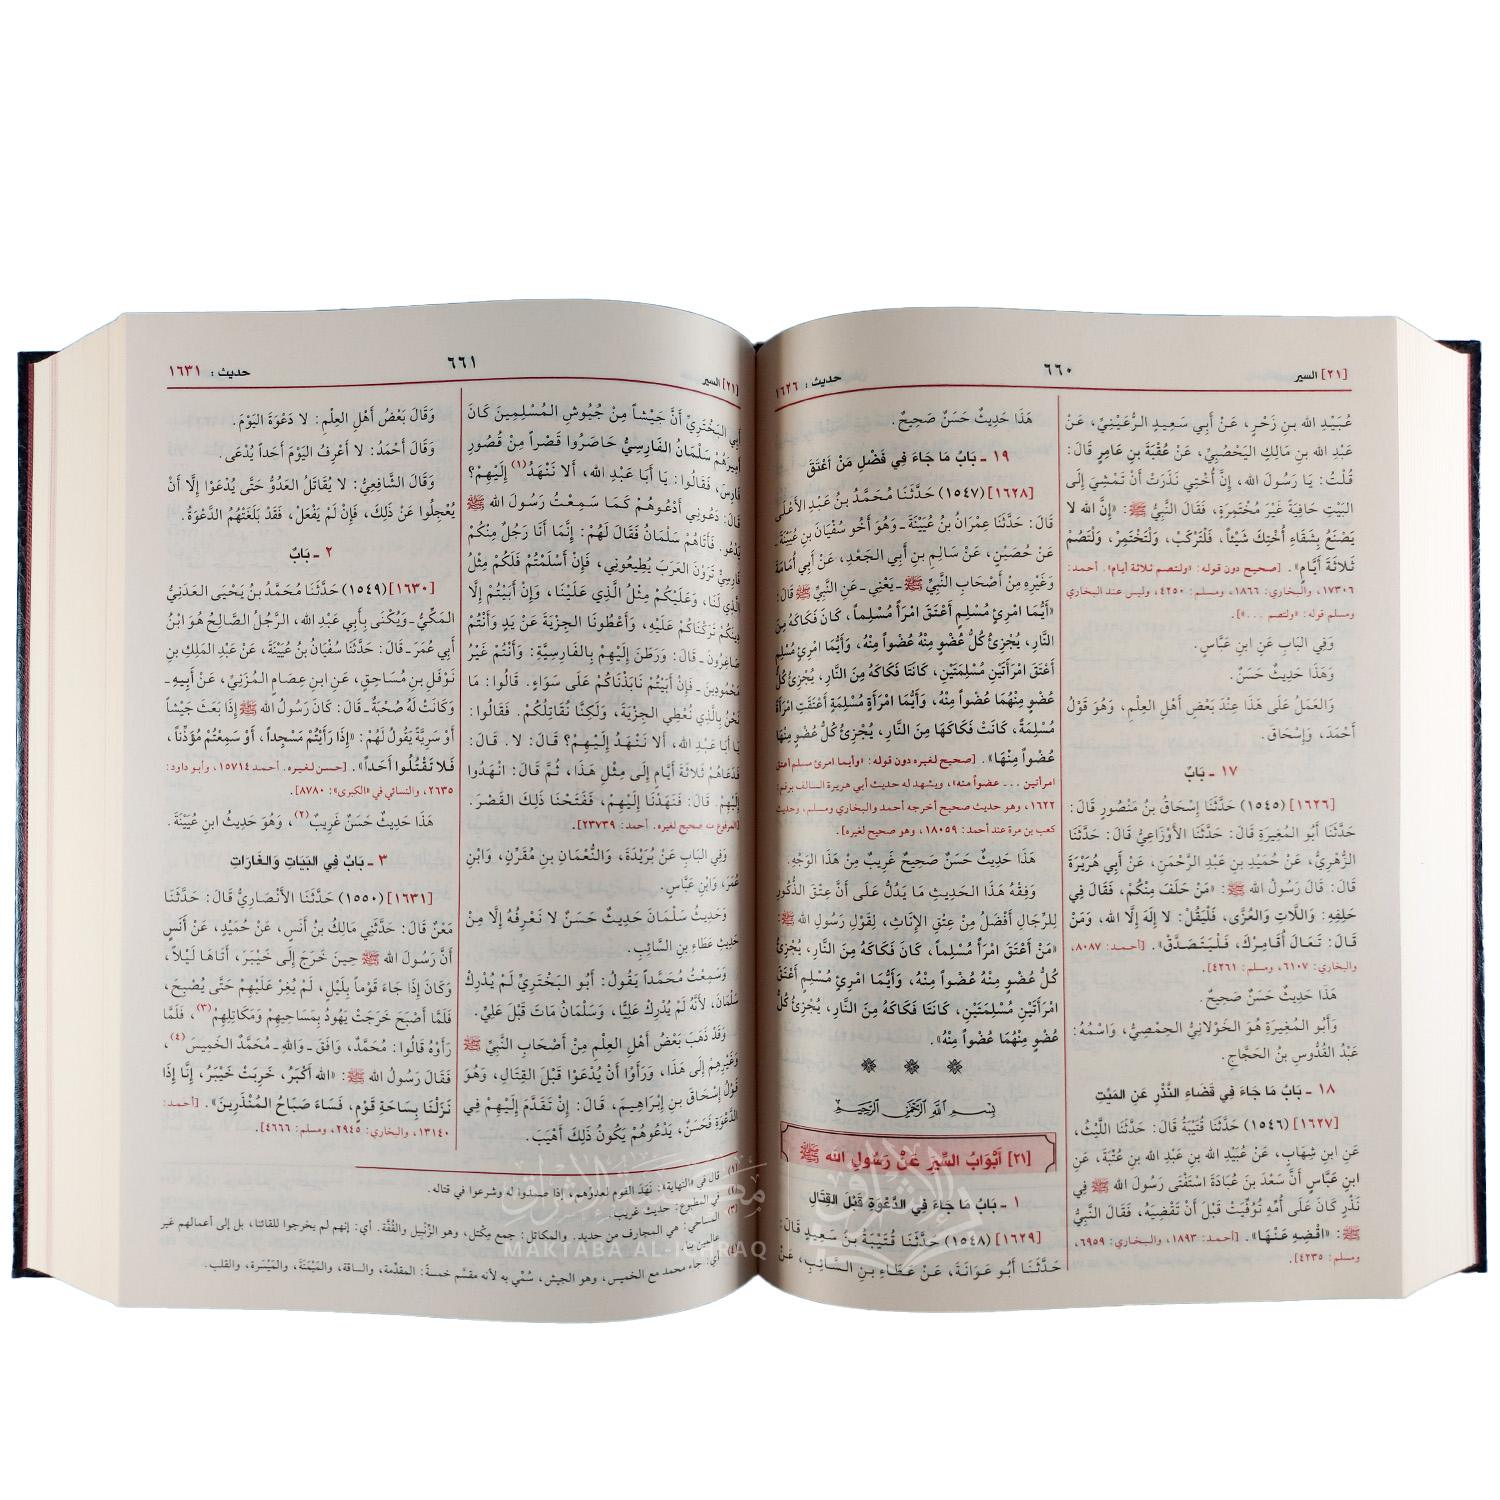 [٢١] السير
٦٦٠
حديث : ١٦٢٦
عُبَيْدِ الله بنِ زَحْرٍ، عَنْ أَبي سَعِيدٍ الرُّعَيْنِيِّ، عَنْ
عَبْدِ الله بنِ مَالِكٍ اليَحْصُبِيِّ، عَنْ عُقْبَةَ بنِ عَامِرٍ قَالَ:
قُلْتُ: يَا رَسُولَ الله، إِنَّ أُخْتِي نَذَرَتْ أَنْ تَمْشِيَ إِلَى
البَيْتِ حَافِيَةً غَيْرَ مُخْتَمِرَةٍ، فَقَالَ النَّبِيُّ ﷺ: «إِنَّ الله لا
يَصْنَعُ بِشَقَاءِ أُخْتِكَ شَيْئاً، فَلْتَرْكَبْ، وَلْتَخْتَمِرْ، وَلْتَصُمْ
ثَلَاثَةَ أَيَّامٍ». [صحيح دون قوله: «ولتصم ثلاثة أيام». أحمد:
١٧٣٠٦، والبخاري: ١٨٦٦، ومسلم: ٤٢٥٠، وليس عند البخاري
ومسلم قوله: «ولتصم . . .»].
وَفِي البَابِ عَنِ ابنِ عَبَّاسٍ.
وَهَذَا حَدِيثٌ حَسَنٌ.
وَالعَمَلُ عَلَى هَذَا عِنْدَ بَعْضِ أَهْلِ العِلْمِ، وَهُوَ قَوْلُ
أَحْمَدَ، وَإِسْحَاقَ.
١٧ ـ بَابٌ
[١٦٢٦] (١٥٤٥) حَدَّثَنَا إِسْحَاقُ بنُ مَنْصُورٍ قَالَ:
حَدَّثَنَا أَبُو المُغِيرَةِ قَالَ: حَدَّثَنَا الأَوْزَاعِيُّ قَالَ: حَدَّثَنَا
الزُّهْرِيُّ، عَنْ حُمَيْدِ بنِ عَبْدِ الرَّحْمَنِ، عَنْ أَبِي هُرَيْرَةَ
قَالَ: قَالَ رَسُولُ الله ﷺ: «مَنْ حَلَفَ مِنْكُمْ، فَقَالَ فِي
حَلِفِهِ: وَاللَّاتِ وَالعُزَّى، فَلْيَقُلْ: لا إِلَهَ إِلَّا الله، وَمَنْ
قَالَ: تَعَالَ أُقَامِرْكَ، فَلْيَتَصَدَّقْ». [أحمد: ٨٠٨٧،
والبخاري: ٦١٠٧، ومسلم: ٤٢٦١].
هَذَا حَدِيثٌ حَسَنٌ صَحِيحٌ.
وَأَبُو المُغِيرَةِ هُوَ الخَوْلَانِيُّ الحِمْصِيُّ، وَاسْمُهُ:
عَبْدُ القُدُّوسِ بنُ الحَجَّاجِ.
١٨ ـ بَابُ مَا جَاءَ فِي قَضَاءِ النَّذْرِ عَنِ المَيِّتِ
[١٦٢٧] (١٥٤٦) حَدَّثَنَا قُتَيْبَةُ قَالَ: حَدَّثَنَا اللَّيْثُ،
عَنِ ابنِ شِهَابٍ، عَنْ عُبَيْدِ الله بنِ عَبْدِ الله بنِ عُتْبَةَ، عَنِ
ابنِ عَبَّاسٍ أَنَّ سَعْدَ بنَ عُبَادَةَ اسْتَفْتَى رَسُولَ الله ﷺ فِي
نَذْرٍ كَانَ عَلَى أُمِّهِ تُوُفِّيَتْ قَبْلَ أَنْ تَقْضِيَهُ، فَقَالَ النَّبِيُّ
ﷺ: «اقْضِهِ عَنْهَا». [أحمد: ١٨٩٣، والبخاري: ٦٩٥٩،
ومسلم: ٤٢٣٥].
هَذَا حَدِيثٌ حَسَنٌ صَحِيحٌ.
١٩ ـ بَابُ مَا جَاءَ فِي فَضْلِ مَنْ أَعْتَقَ
[١٦٢٨] (١٥٤٧) حَدَّثَنَا مُحَمَّدُ بنُ عَبْدِ الأَعْلَى
قَالَ: حَدَّثَنَا عِمْرَانُ بنُ عُيَيْنَةَ ـ وَهُوَ أَخُو سُفْيَانَ بنِ عُيَيْنَةَ ـ
عَنْ حُصَيْنٍ، عَنْ سَالِمِ بنِ أَبِي الجَعْدِ، عَنْ أَبِي أُمَامَةَ
وَغَيْرِهِ مِنْ أَصْحَابِ النَّبِيِّ ﷺ ـ يَعْنِي ـ عَنِ النَّبِيِّ ﷺ قَالَ:
«أَيُّمَا امْرِئٍ مُسْلِمٍ أَعْتَقَ امْرَأً مُسْلِماً، كَانَ فَكَاكَهُ مِنَ
النَّارِ، يُجْزِئُ كُلُّ عُضْوٍ مِنْهُ عُضْواً مِنْهُ، وَأَيُّمَا امْرِئٍ مُسْلِمٍ
أَعْتَقَ امْرَأَتَيْنِ مُسْلِمَتَيْنِ، كَانَتَا فَكَاكَهُ مِنَ النَّارِ، يُجْزِئُ كُلُّ
عُضْوٍ مِنْهُمَا عُضْواً مِنْهُ، وَأَيُّمَا امْرَأَةٍ مُسْلِمَةٍ أَعْتَقَتِ امْرَأَةً
مُسْلِمَةً، كَانَتْ فَكَاكَهَا مِنَ النَّارِ، يُجْزِئُ كُلُّ عُضْوٍ مِنْهَا
عُضْواً مِنْهَا». [صحيح لغيره دون قوله: «وأيما امرئ مسلم أعتق
امرأتين . . . عضواً منه»، ويشهد له حديث أبي هريرة السالف برقم:
١٦٢٢، وهو حديث صحيح أخرجه أحمد والبخاري ومسلم، وحديث
كعب بن مرة عند أحمد: ١٨٠٥٩، وهو صحيح لغيره]
هَذَا حَدِيثٌ حَسَنٌ صَحِيحٌ غَرِيبٌ مِنْ هَذَا الوَجْهِ.
وَفِقْهُ هَذَا الحَدِيثِ مَا يَدُلُّ عَلَى أَنَّ عِتْقَ الذُّكُورِ
لِلرِّجَالِ أَفْضَلُ مِنْ عِتْقِ الإِنَاثِ، لِقَوْلِ رَسُولِ الله ﷺ:
«مَنْ أَعْتَقَ امْرَأً مُسْلِماً، كَانَ فَكَاكَهُ مِنَ النَّارِ، يُجْزِئُ
كُلُّ عُضْوٍ مِنْهُ عُضْواً مِنْهُ، وَأَيُّمَا امْرِئٍ مُسْلِمٍ أَعْتَقَ
امْرَأَتَيْنِ مُسْلِمَتَيْنِ، كَانَتَا فَكَاكَهُ مِنَ النَّارِ، يُجْزِئُ كُلُّ
عُضْوٍ مِنْهُمَا عُضْواً مِنْهُ».
بِسْمِ اللهِ الرَّحْمَنِ الرَّحِيمِ
[٢١] أَبْوَابُ السِّيَرِ عَنْ رَسُولِ الله ﷺ
١ ـ بَابُ مَا جَاءَ فِي الدَّعْوَةِ قَبْلَ القِتَالِ
[١٦٢٩] (١٥٤٨) حَدَّثَنَا قُتَيْبَةُ بنُ سَعِيدٍ قَالَ:
حَدَّثَنَا أَبُو عَوَانَةَ، عَنْ عَطَاءِ بنِ السَّائِبِ، عَنْ
[٢١] السير
٦٦١
حديث : ١٦٣١
أَبِي البَخْتَرِيِّ أَنَّ جَيْشاً مِنْ جُيُوشِ المُسْلِمِينَ كَانَ
أَمِيرَهُمْ سَلْمَانُ الفَارِسِيُّ حَاصَرُوا قَصْراً مِنْ قُصُورِ
فَارِسَ، فَقَالُوا: يَا أَبَا عَبْدِ الله، أَلَا نَنْهَدُ(١) إِلَيْهِمْ؟
قَالَ: دَعُونِي أَدْعُوهُمْ كَمَا سَمِعْتُ رَسُولَ الله ﷺ
يَدْعُو. فَأَتَاهُمْ سَلْمَانُ فَقَالَ لَهُمْ: إِنَّمَا أَنَا رَجُلٌ مِنْكُمْ
فَارِسِيٌّ تَرَوْنَ العَرَبَ يُطِيعُونِي، فَإِنْ أَسْلَمْتُمْ فَلَكُمْ مِثْلُ
الَّذِي لَنَا، وَعَلَيْكُمْ مِثْلُ الَّذِي عَلَيْنَا، وَإِنْ أَبَيْتُمْ إِلَّا
دِينَكُمْ تَرَكْنَاكُمْ عَلَيْهِ، وَأَعْطُونَا الجِزْيَةَ عَنْ يَدٍ وَأَنْتُمْ
صَاغِرُونَ ـ قَالَ: وَرَطَنَ إِلَيْهِمْ بِالفَارِسِيَّةِ: وَأَنْتُمْ غَيْرُ
مَحْمُودِينَ ـ فَإِنْ أَبَيْتُمْ نَابَذْنَاكُمْ عَلَى سَوَاءٍ. قَالُوا: مَا
نَحْنُ بِالَّذِي نُعْطِي الجِزْيَةَ، وَلَكِنَّا نُقَاتِلُكُمْ. فَقَالُوا:
يَا أَبَا عَبْدِ الله، أَلَا نَنْهَدُ إِلَيْهِمْ؟ قَالَ: لَا. قَالَ:
فَدَعَاهُمْ ثَلَاثَةَ أَيَّامٍ إِلَى مِثْلِ هَذَا، ثُمَّ قَالَ: انْهَدُوا
إِلَيْهِمْ. قَالَ: فَنَهَدْنَا إِلَيْهِمْ، فَفَتَحْنَا ذَلِكَ القَصْرَ.
[المرفوع منه صحيح لغيره. أحمد: ٢٣٧٣٩].
وَفِي البَابِ عَنْ بُرَيْدَةَ، وَالنُّعْمَانِ بنِ مُقَرِّنٍ، وَابْنِ
عُمَرَ، وَابْنِ عَبَّاسٍ.
وَحَدِيثُ سَلْمَانَ حَدِيثٌ حَسَنٌ لَا نَعْرِفُهُ إِلَّا مِنْ
حَدِيثِ عَطَاءِ بنِ السَّائِبِ.
وَسَمِعْتُ مُحَمَّداً يَقُولُ: أَبُو البَخْتَرِيِّ لَمْ يُدْرِكْ
سَلْمَانَ، لأَنَّهُ لَمْ يُدْرِكْ عَلِيًّا، وَسَلْمَانُ مَاتَ قَبْلَ عَلِيٍّ.
وَقَدْ ذَهَبَ بَعْضُ أَهْلِ العِلْمِ مِنْ أَصْحَابِ النَّبِيِّ ﷺ
وَغَيْرِهِمْ إِلَى هَذَا، وَرَأَوْا أَنْ يُدْعَوْا قَبْلَ القِتَالِ، وَهُوَ
قَوْلُ إِسْحَاقَ بنِ إِبْرَاهِيمَ، قَالَ: إِنْ تَقَدَّمَ إِلَيْهِمْ فِي
الدَّعْوَةِ فَحَسَنٌ، يَدْعُوهُمْ يَكُونُ ذَلِكَ أَهْيَبَ.
وَقَالَ بَعْضُ أَهْلِ العِلْمِ: لا دَعْوَةَ اليَوْمَ.
وَقَالَ أَحْمَدُ: لا أَعْرِفُ اليَوْمَ أَحَداً يُدْعَى.
وَقَالَ الشَّافِعِيُّ: لا يُقَاتَلُ العَدُوُّ حَتَّى يُدْعَوْا إِلَّا أَنْ
يُعْجِلُوا عَنْ ذَلِكَ، فَإِنْ لَمْ يَفْعَلْ، فَقَدْ بَلَغَتْهُمُ الدَّعْوَةُ.
٢ ـ بَابٌ
[١٦٣٠] (١٥٤٩) حَدَّثَنَا مُحَمَّدُ بنُ يَحْيَى العَدَنِيُّ
المَكِّيُّ ـ وَيُكْنَى بِأَبِي عَبْدِ الله، الرَّجُلُ الصَّالِحُ هُوَ ابْنُ
أَبِي عُمَرَ ـ قَالَ: حَدَّثَنَا سُفْيَانُ بنُ عُيَيْنَةَ، عَنْ عَبْدِ المَلِكِ بنِ
نَوْفَلِ بنِ مُسَاحِقٍ، عَنِ ابنِ عِصَامٍ المُزَنِيِّ، عَنْ أَبِيهِ ـ
وَكَانَتْ لَهُ صُحْبَةٌ ـ قَالَ: كَانَ رَسُولُ الله ﷺ إِذَا بَعَثَ جَيْشاً
أَوْ سَرِيَّةً يَقُولُ لَهُمْ: «إِذَا رَأَيْتُمْ مَسْجِداً، أَوْ سَمِعْتُمْ مُؤَذِّناً،
فَلَا تَقْتُلُوا أَحَداً». [حسن لغيره. أحمد: ١٥٧١٤، وأبو داود:
٢٦٣٥، والنسائي في «الكبرى»: ٨٧٨٠].
هَذَا حَدِيثٌ حَسَنٌ غَرِيبٌ(٢)، وَهُوَ حَدِيثُ ابنِ عُيَيْنَةَ.
٣ ـ بَابٌ فِي البَيَاتِ وَالغَارَاتِ
[١٦٣١] (١٥٥٠) حَدَّثَنَا الأَنْصَارِيُّ قَالَ: حَدَّثَنَا
مَعْنٌ قَالَ: حَدَّثَنِي مَالِكُ بنُ أَنَسٍ، عَنْ حُمَيْدٍ، عَنْ أَنَسٍ
أَنَّ رَسُولَ الله ﷺ حِينَ خَرَجَ إِلَى خَيْبَرَ، أَتَاهَا لَيْلاً،
وَكَانَ إِذَا جَاءَ قَوْماً بِلَيْلٍ، لَمْ يُغِرْ عَلَيْهِمْ حَتَّى يُصْبِحَ،
فَلَمَّا أَصْبَحَ خَرَجَتْ يَهُودُ بِمَسَاحِيهِمْ وَمَكَاتِلِهِمْ(٣)، فَلَمَّا
رَأَوْهُ قَالُوا: مُحَمَّدٌ، وَافَقَ ـ وَاللهِ ـ مُحَمَّدٌ الخَمِيسَ(٤)،
فَقَالَ رَسُولُ الله ﷺ: «الله أَكْبَرُ، خَرِبَتْ خَيْبَرُ، إِنَّا إِذَا
نَزَلْنَا بِسَاحَةِ قَوْمٍ، فَسَاءَ صَبَاحُ المُنْذَرِينَ». [أحمد:
١٣١٤٠، والبخاري: ٢٩٤٥، ومسلم: ٤٦٦٦].
(١) قال في «النهاية»: نَهَدَ القوم لعدوِّهم، إذا صمدوا له وشرعوا في قتاله.
(٢) في المطبوع: حديث غريب.
(٣) المساحي: هي المجارف من حديد. والمكاتل: جمع مِكْتَل، وهو الزِّنْبيل والقُفَّة. أي: إنهم لم يخرجوا للقائنا، بل إلى أعمالهم غير
عالمين بنا.
(٤) أي: جاء محمد مع الخميس، وهو الجيش، سُمِّي به لأنه مقسَّم خمسة: المقدِّمة، والساقة، والمَيْمَنَة، والمَيْسَرة، والقلب.
مكتبة الإشراق
MAKTABA AL-ICHRAQ